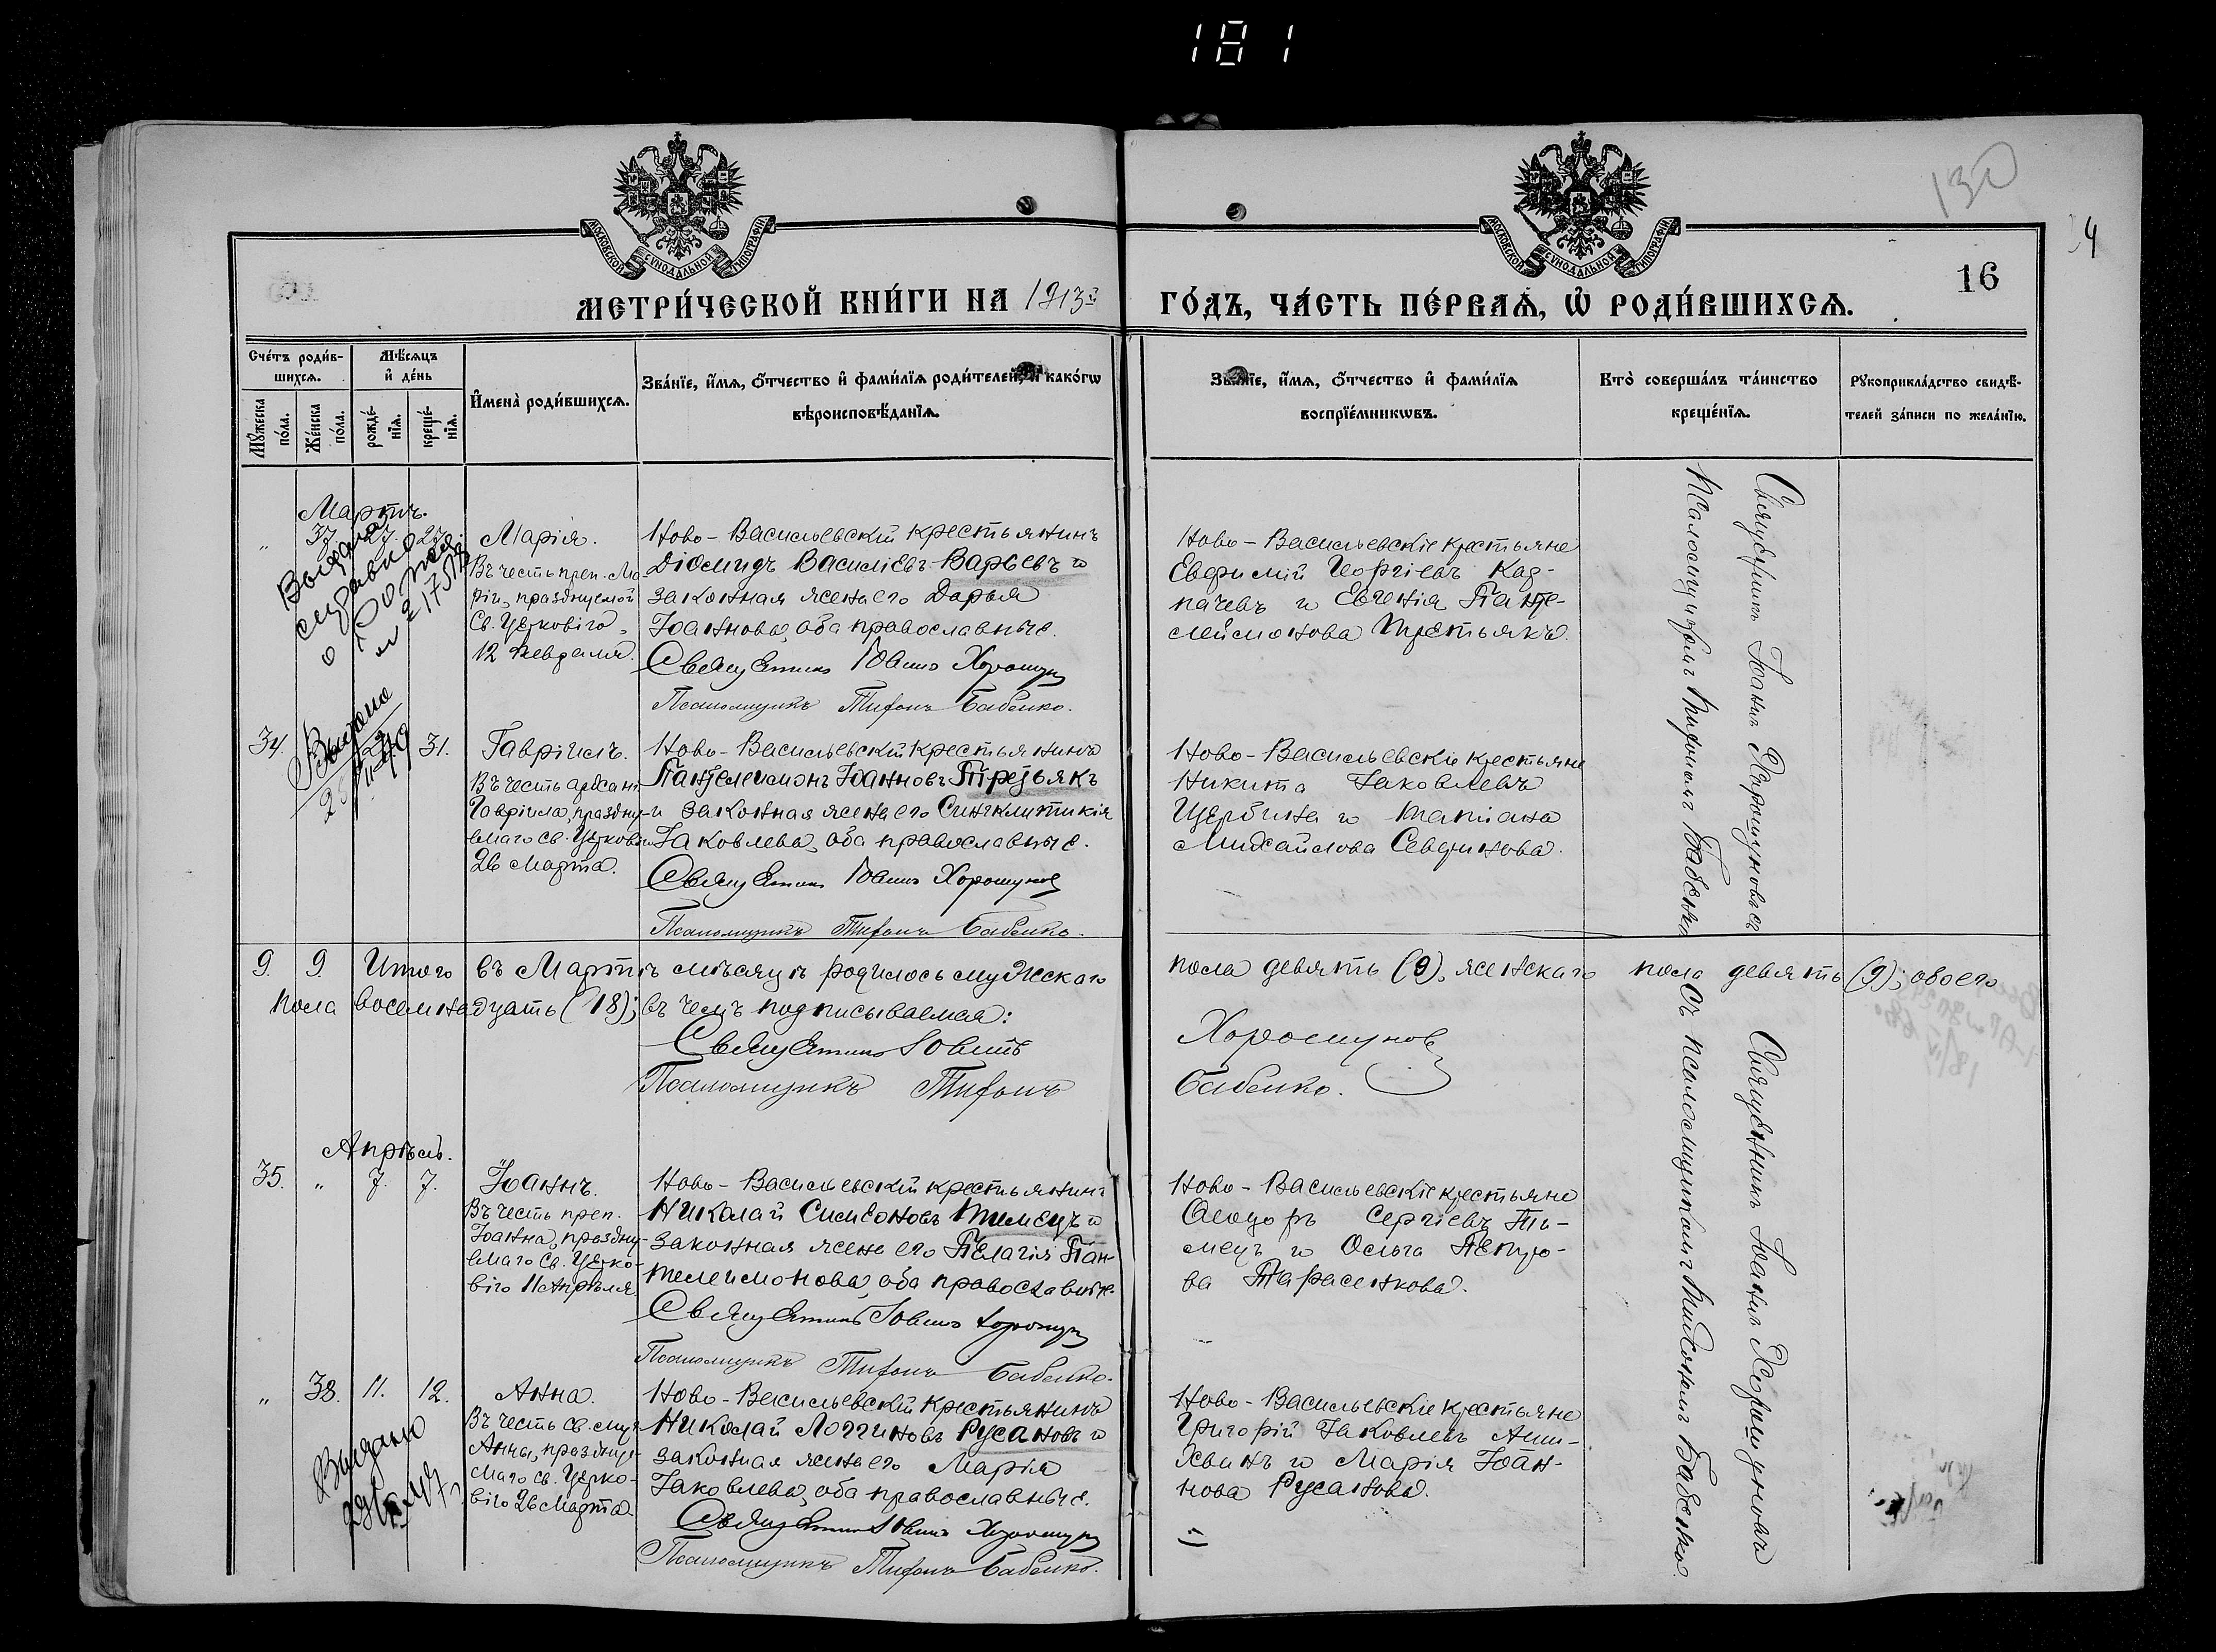 181
130
4
16
МОСКОВСКОЙ СѴНОДАЛЬНОЙ ТИПОГРАФІИ
МОСКОВСКОЙ СѴНОДАЛЬНОЙ ТИПОГРАФІИ
МЕТРИ́ЧЕСКОЙ КНИ́ГИ НА 1913й ГО́ДЪ, ЧА́СТЬ ПЕ́РВАѦ, Ѡ҆ РОДИ́ВШИХСѦ.
Сче́тъ роди́в-
шихсѧ.
Мѣ́сѧцъ
и҆ де́нь
Мꙋ́жеска
по́ла.
Же́нска
по́ла.
рожде́-
нїѧ.
креще́-
нїѧ.
И҆мена̀ роди́вшихсѧ.
Зва́нїе, и҆́мѧ, ѻ҆́тчество и҆ фами́лїѧ роди́телей, и҆ како́гѡ
вѣроисповѣ́данїѧ.
Зва́нїе, и҆́мѧ, ѻ҆́тчество и҆ фами́лїѧ
воспрїе́мникѡвъ.
Кто̀ соверша́лъ та́инство
креще́нїѧ.
Рꙋкоприкла́дство свидѣ́-
телей за́писи по жела́нїю.
Мартъ.
" 37. 27. Марія.
Въ честь преп. Ма-
ріи, празднуемой
Св. Церковію
12 Февраля.
Ново-Васильевскій крестьянинъ
Діомидъ Василіевъ Варьевъ и
законная жена его Дарья
Іоаннова, оба православные.
Священникъ Іоаннъ Хорошунов
Псаломщикъ Тифонъ Бабенко.
Ново-Васильевскіе крестьяне
Евфимій Георгіевъ Кад-
пачевъ и Евгенія Панте-
леймонова Третьякъ.
Выдана
справка
о
Выдано
34. 31. Гавріилъ.
Въ честь архан.
Гавріила, праздну-
емаго Св. Церковію
26 Марта.
Ново-Васильевскій крестьянинъ
Пантелеимонъ Іоанновъ Третьякъ
и законная жена его Синклитикія
Іаковлева, оба православные.
Священникъ Іоаннъ Хорошунов
Псаломщикъ Тифонъ Бабенко.
Ново-Васильевскіе крестьяне
Никита Іаковлевъ
Щербина и Татіана
Михайлова Севринова.
Священникъ Іоаннъ Хорошуновъ съ
Псаломщикомъ Тифономъ Бабенко
9. 9. Итого въ Мартѣ мѣсяцѣ родилось мужескаго пола девять (9), женскаго пола девять (9); обоего
пола восемнадцать (18); въ чемъ подписываемся:
Священникъ Іоаннъ Хорошунов
Псаломщикъ Тифонъ Бабенко.
Апрѣль.
35. " 7. 7. Іоаннъ.
Въ честь преп.
Іоанна, празднуе-
маго Св. Церко-
вію 11 Апрѣля.
Ново-Васильевскій крестьянинъ
Николай Симеоновъ Тимецъ и
законная жена его Пелагія Пан-
телеимонова, оба православные.
Священникъ Іоаннъ Хорошунов
Псаломщикъ Тифонъ Бабенко.
Ново-Васильевскіе крестьяне
Ѳеодоръ Сергіевъ Ти-
мецъ и Ольга Петро-
ва Тарасенкова.
" 38. 11. 12. Анна.
Въ честь св. муч.
Анны, празднуе-
маго св. Церко-
вію 26 Марта.
Выдано
Ново-Васильевскій крестьянинъ
Николай Логгиновъ Русановъ и
законная жена его Марія
Іаковлева, оба православные.
Священникъ Іоаннъ Хорошунов
Псаломщикъ Тифонъ Бабенко.
Ново-Васильевскіе крестьяне
Григорій Іаковлевъ Аши-
хминъ и Марія Іоан-
нова Русанова.
Священникъ Іоаннъ Хорошуновъ
съ псаломщикомъ Тифономъ Бабенко.